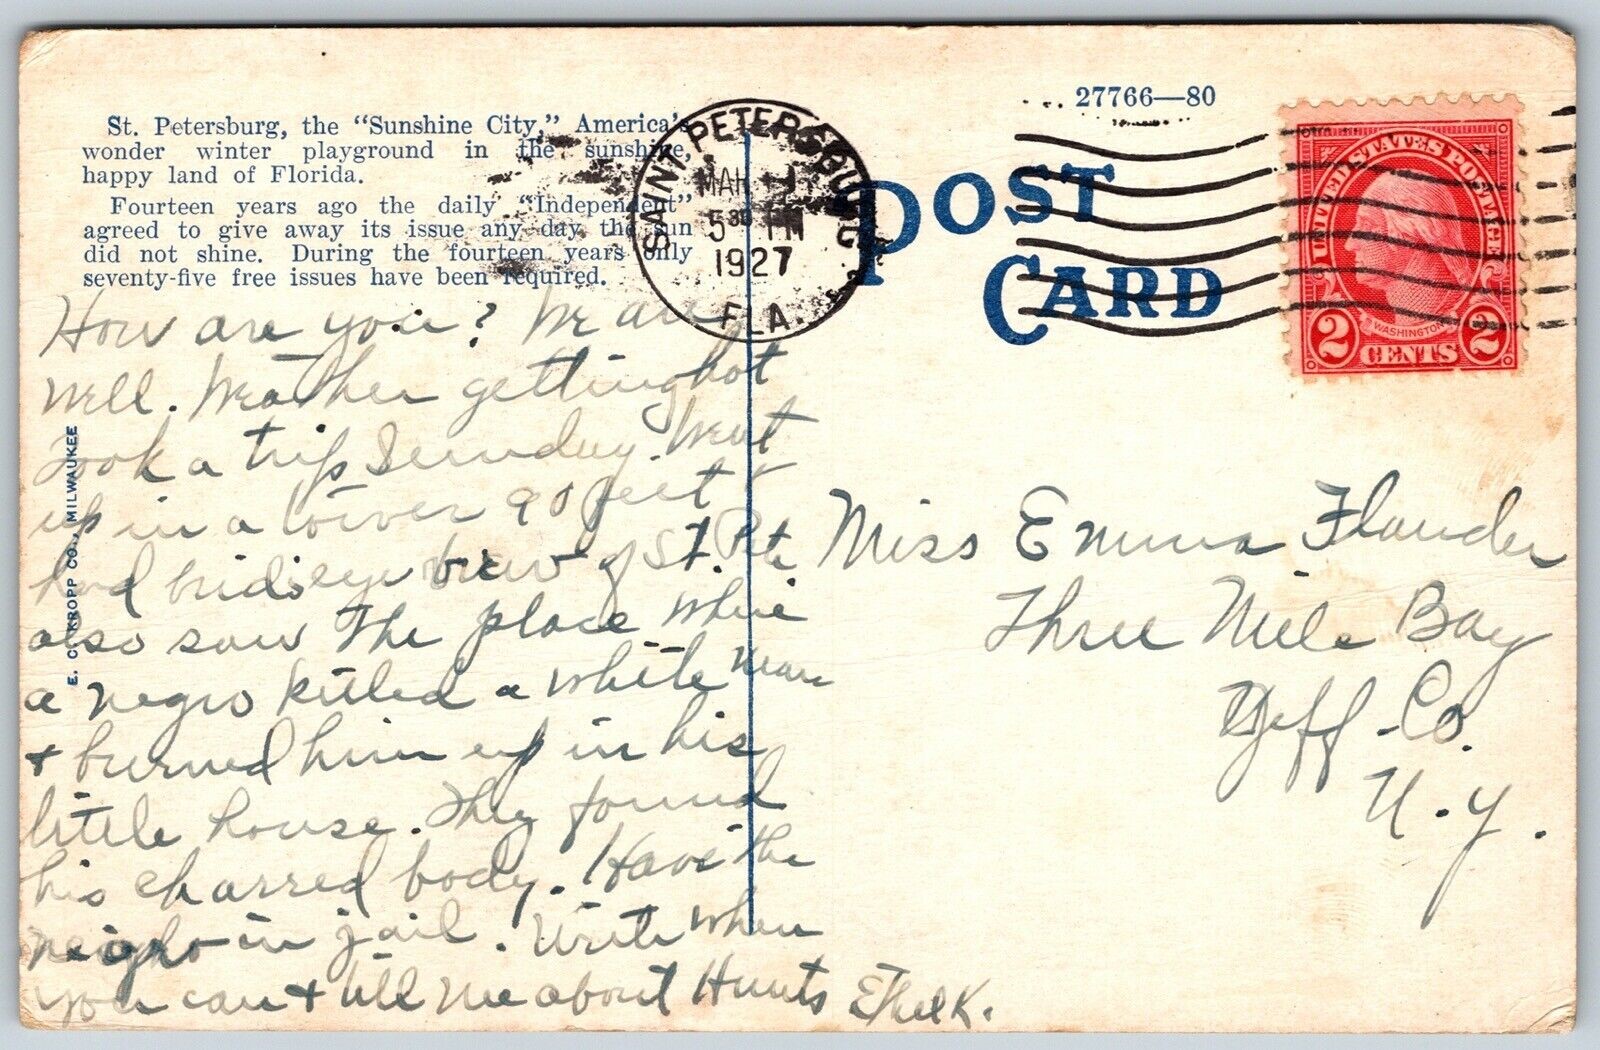 27766—80
St. Petersburg, the "Sunshine City," America's
wonder winter playground in the sunshine,
happy land of Florida.
Fourteen years ago the daily "Independent"
agreed to give away its issue any day the sun
did not shine. During the fourteen years only
seventy-five free issues have been required.
SAINT PETERSBURG
MAR
5 30 PM
1927
FLA.
POST
CARD
UNITED STATES POSTAGE
WASHINGTON
2 CENTS 2
E. C. KROPP CO., MILWAUKEE
How are you? We are
well. Weather getting hot
Took a trip Sunday. Went
up in a tower 90 feet
had birdseye view of St. Pete
also saw the place where
a negro killed a white man
+ burned him up in his
little house. They found
his charred body. Have the
neigro in jail. Write when
you can + till me about Hunts Ethel K.
Miss Emma Flander
Three Mile Bay
Jeff-Co.
N.Y.